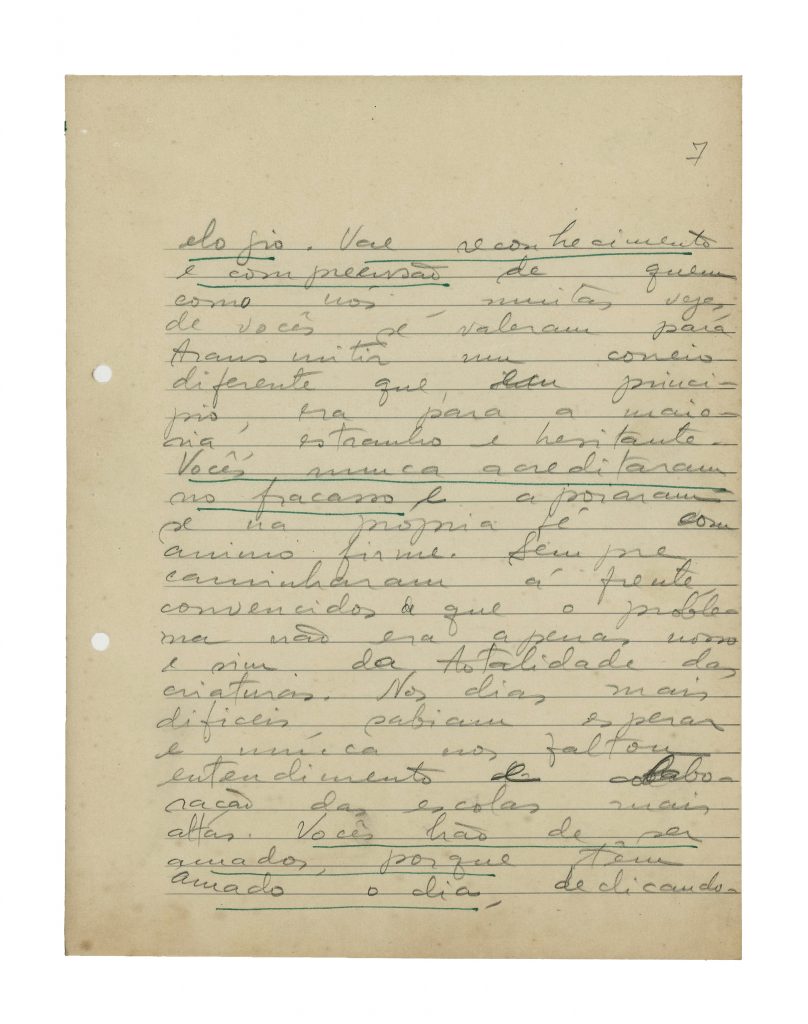 7
elogio. Vae reconhecimento
e compreensão de quem
como nós, muitas vezes
de vocês se valeram para
transmitir um correio
diferente que, em princi-
pio, era para a maio-
ria, estranho e hesitante.
Vocês nunca acreditaram
no fracasso e apoiaram
se na própria fé com
animo firme. Sempre
caminharam á frente,
convencidos de que o proble-
ma não era apenas nosso
e sim da totalidade das
criaturas. Nos dias mais
dificeis sabiam esperar
e nunca nos faltou
entendimento e colabo-
ração das escolas mais
altas. Vocês hão de ser
amados, porque têm
amado o dia, dedicando-